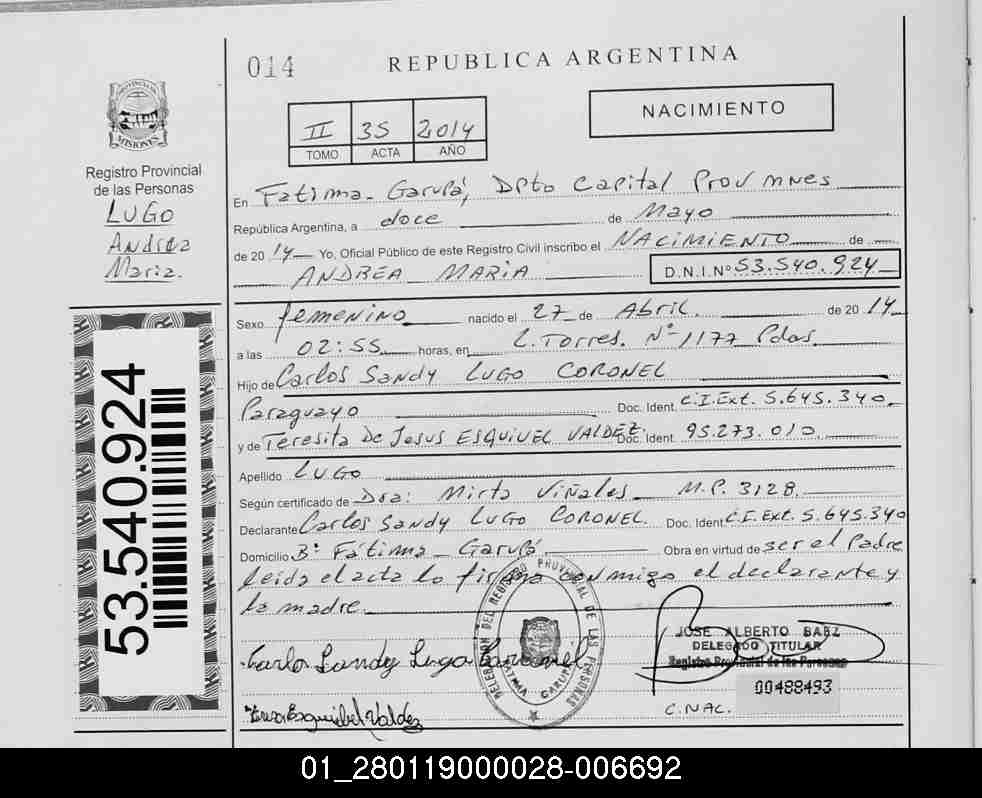 014
REPUBLICA ARGENTINA
PROVINCIA DE
MISIONES
Registro Provincial
de las Personas
LUGO
Andrea
Maria.
II 35 2,014
TOMO ACTA AÑO
NACIMIENTO
En Fatima - Garupá, Dpto Capital Prov Mnes
República Argentina, a doce de Mayo
de 2014 Yo, Oficial Público de este Registro Civil inscribo el NACIMIENTO de
ANDREA MARIA D.N.I.Nº 53.540.924
Sexo femenino nacido el 27 de Abril. de 2014
a las 02:55 horas, en L. Torres. Nº 1177 Pdas.
Hijo de Carlos Sandy LUGO CORONEL
Paraguayo Doc. Ident. C.I.Ext. 5.645.340
y de Teresita De Jesus ESQUIVEL VALDEZ Doc. Ident. 95.273.010
Apellido LUGO
Según certificado de Dra: Mirta Viñales M.P. 3128.
Declarante Carlos Sandy LUGO CORONEL. Doc. Ident C.I.Ext. 5.645.340
Domicilio Bº Fátima - Garupá Obra en virtud de ser el Padre
leida el acta lo firma conmigo el declarante y
la madre.
53.540.924
DELEGACION DEL REGISTRO PROVINCIAL DE LAS PERSONAS
FATIMA GARUPA
Carlo Sandy Lugo Coronel
Esquibel Valdez
JOSE ALBERTO BAEZ
DELEGADO TITULAR
Registro Provincial de las Personas
00488493
C.NAC.
01_280119000028-006692